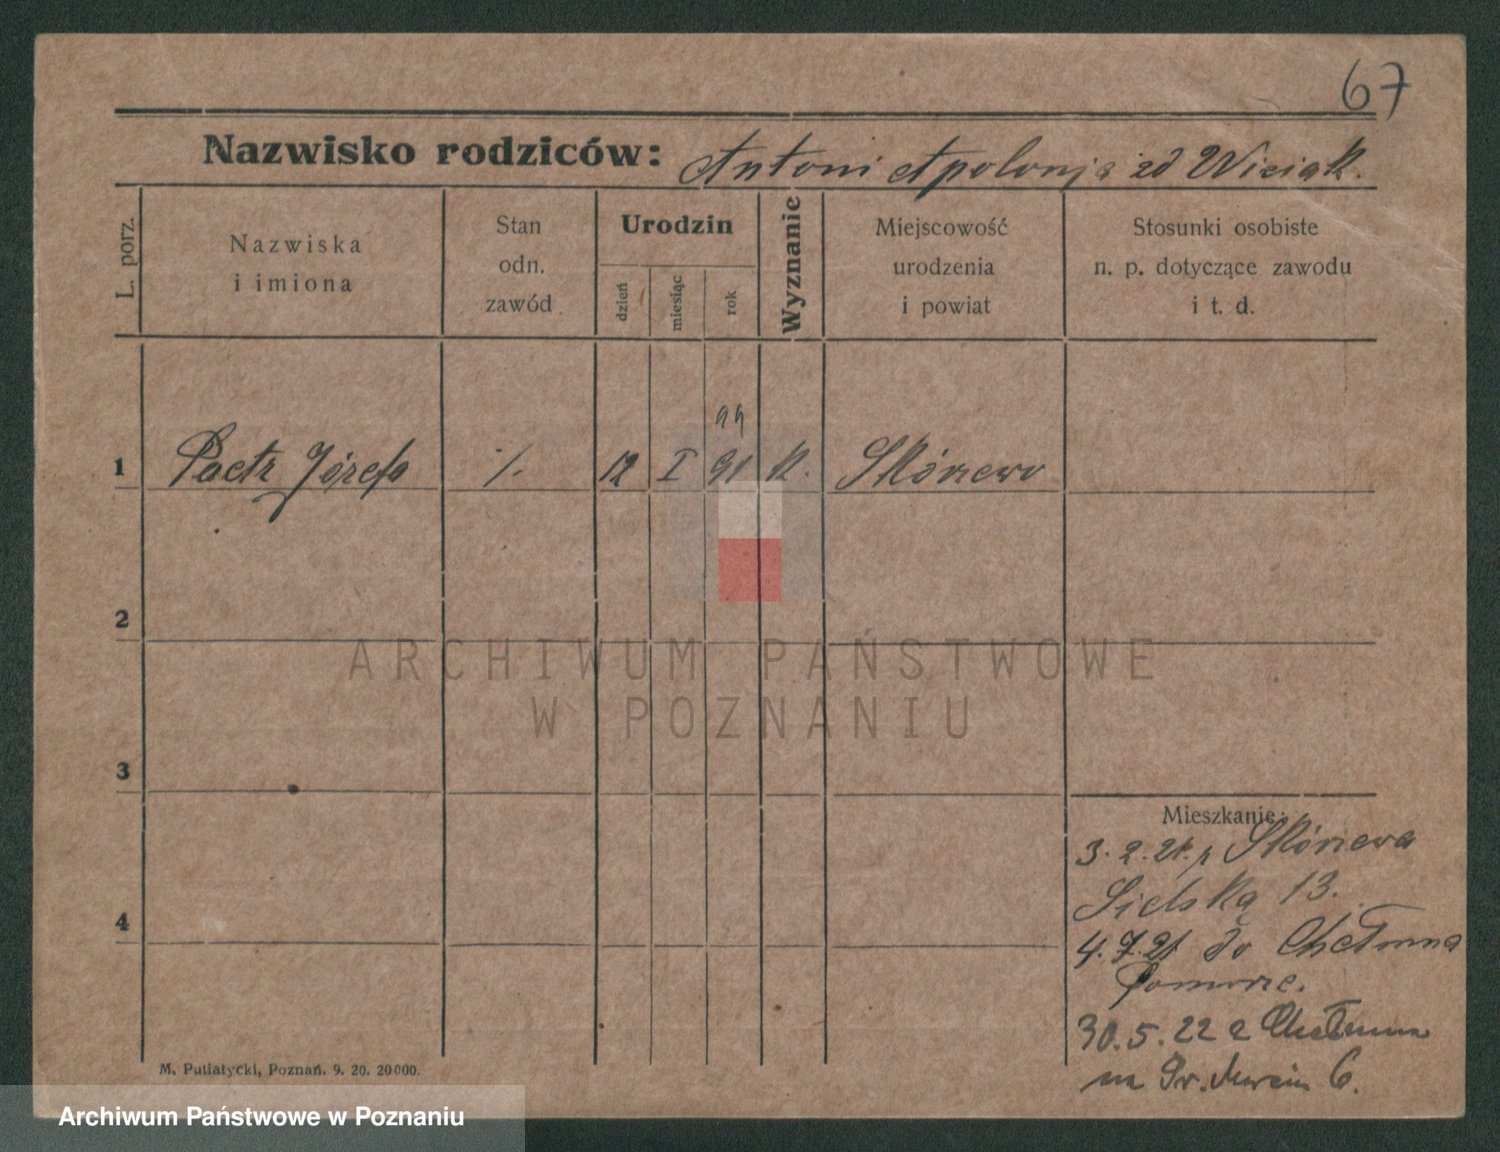 67
Nazwisko rodziców: Antoni Apolonja zd Wiciak.
L. porz.
Nazwiska
i imiona
Stan
odn.
zawód
Urodzin
dzień
miesiąc
rok
Wyznanie
Miejscowość
urodzenia
i powiat
Stosunki osobiste
n. p. dotyczące zawodu
i t. d.
99
1 Paetz Józefa /. 12 I 91 K. Skórzewo
2
3
4
Mieszkanie:
3. 2. 21. z Skórzewa
Sielska 13.
4. 7. 21 do Chełmna
Pomorze.
30. 5. 22 z Chełmna
na Św. Marcin 6.
M. Putiatycki, Poznań. 9. 20. 20000.
ARCHIWUM PAŃSTWOWE
W POZNANIU
Archiwum Państwowe w Poznaniu